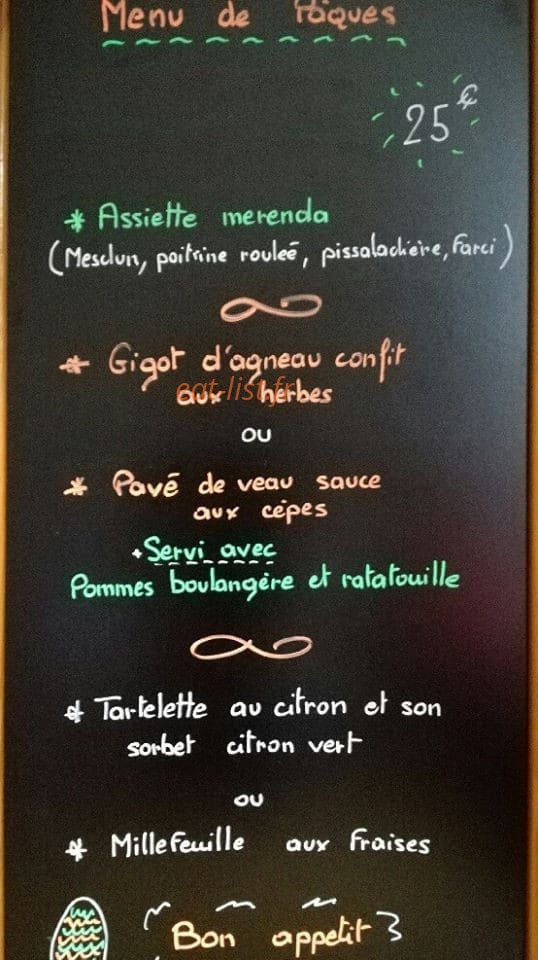 Menu de Pâques
25€
* Assiette merenda
(Mesclun, poitrine rouleé, pissaladière, Farci)
* Gigot d'agneau confit
eat-list.fr
aux herbes
ou
* Pavé de veau sauce
aux cèpes
+ Servi avec
Pommes boulangère et ratatouille
* Tartelette au citron et son
sorbet citron vert
ou
* Millefeuille aux Fraises
Bon appetit